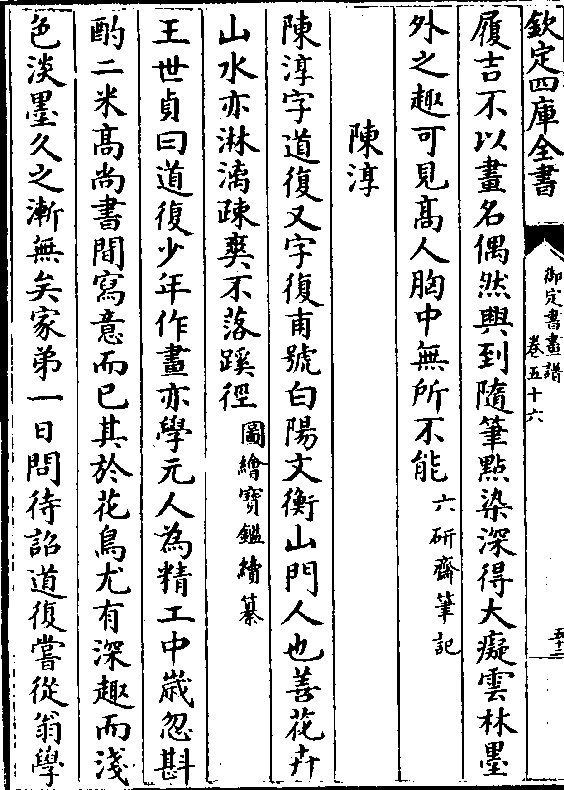 欽定四庫全書
御定書畫譜
卷五十六
五十二
履吉不以畫名偶然興到隨筆點染深得大癡雲林墨
外之趣可見髙人胸中無所不能六研齋筆記
陳淳
陳淳字道復又字復甫號白陽文衡山門人也善花卉
山水亦淋漓疎爽不落蹊徑圖繪寶鑑續纂
王世貞曰道復少年作畫亦學元人為精工中歲忽斟
酌二米髙尚書間寫意而已其於花鳥尤有深趣而淺
色淡墨久之漸無矣家弟一日問待詔道復嘗從翁學